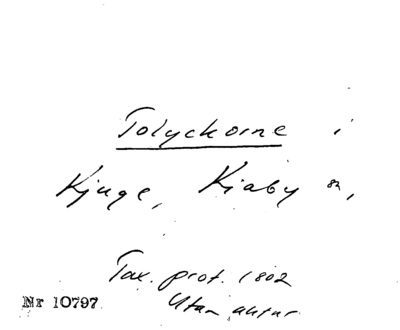 Tolyckorne i
Kjuge, Kiaby sn,
Tax. prot. 1802
Utan antur.
Nr 10797